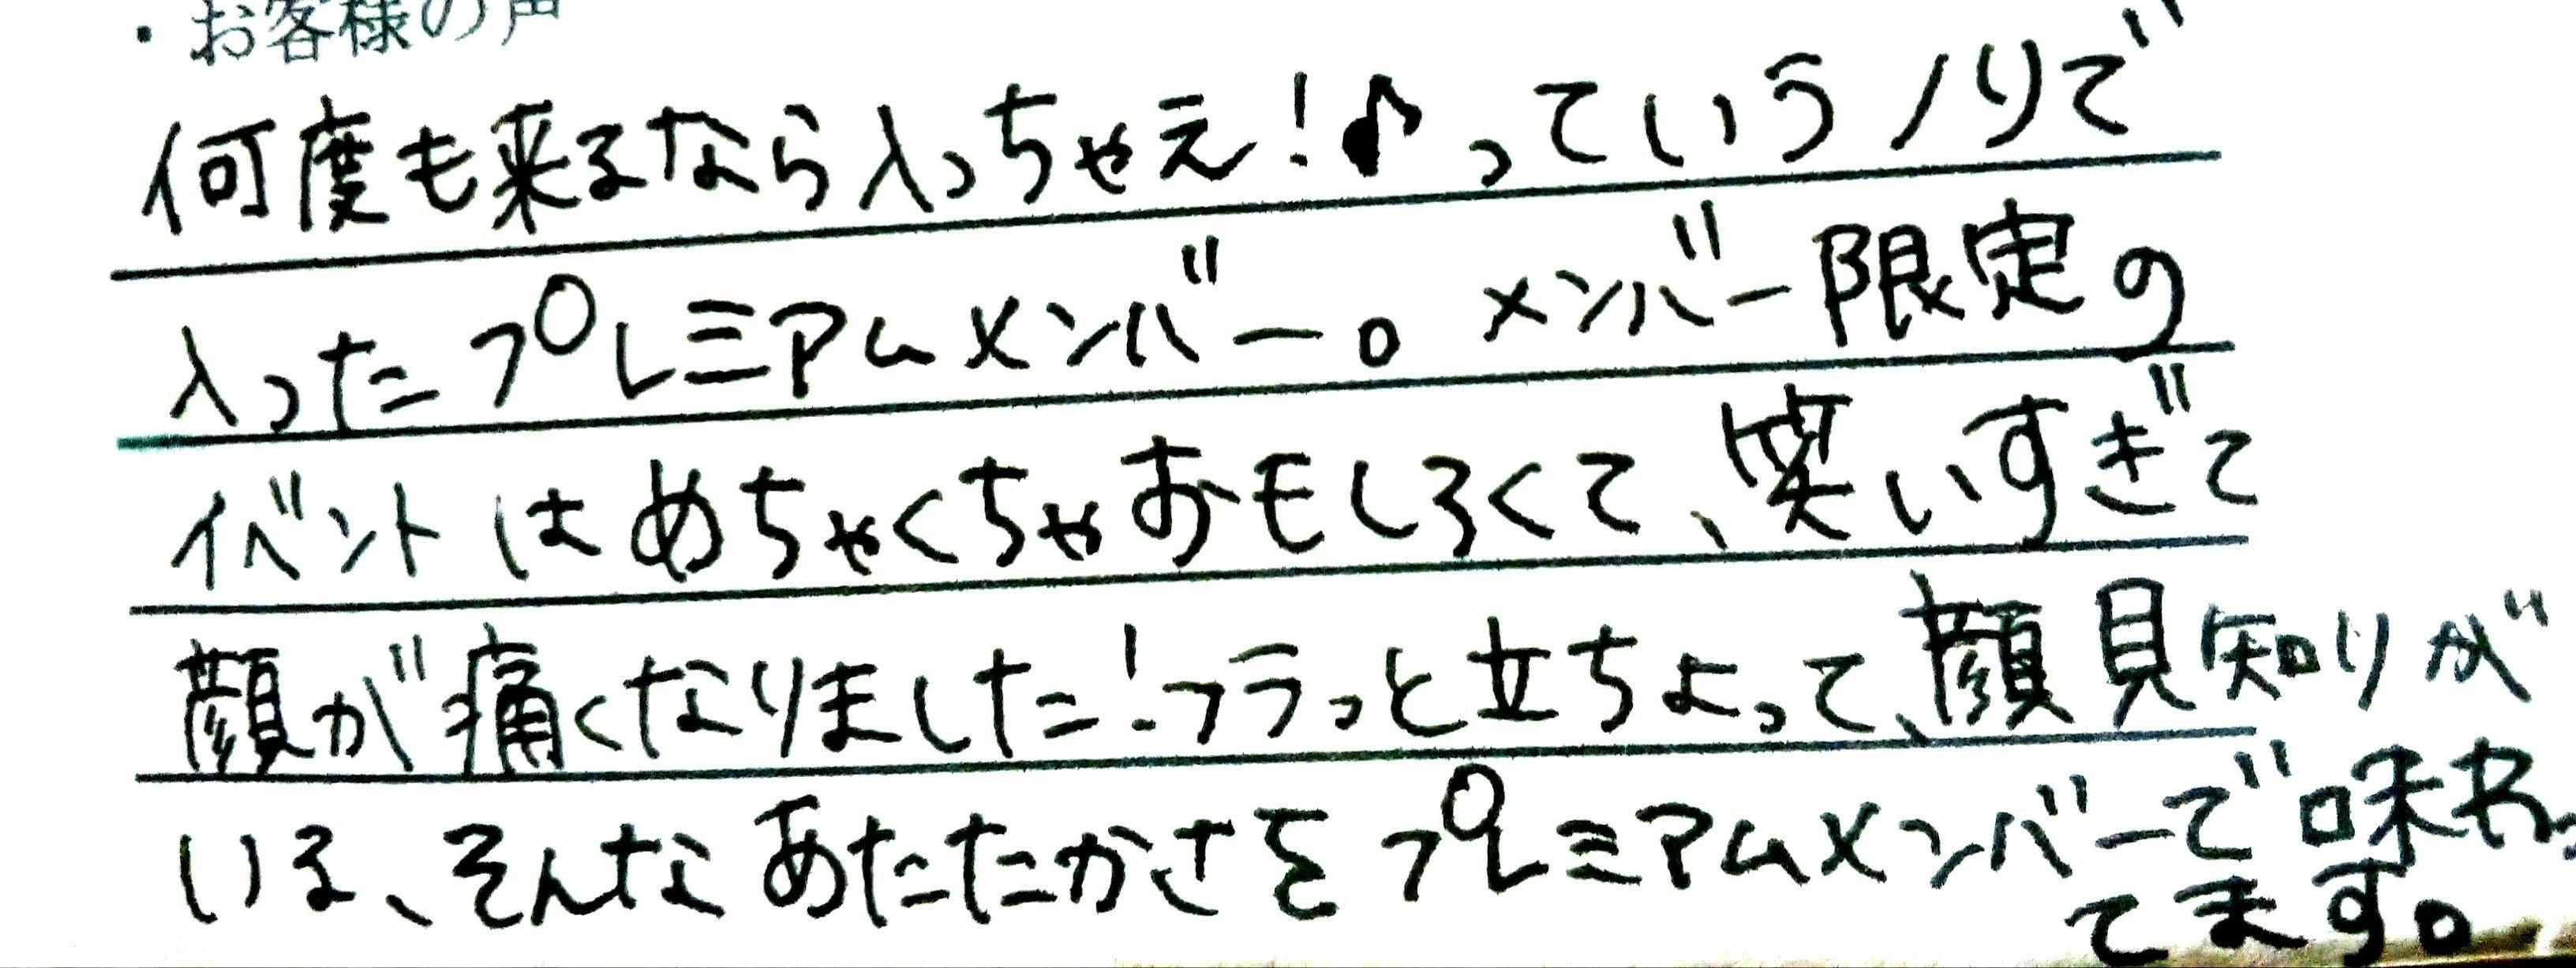 ・お客様の声
何度も来るなら入っちゃえ!♪っていうノリで
入ったプレミアムメンバー。メンバー限定の
イベントはめちゃくちゃおもしろくて、笑いすぎて
顔が痛くなりました!フラっと立ちよって、顔見知りが
いる、そんなあたたかさをプレミアムメンバーで味わっ
てます。